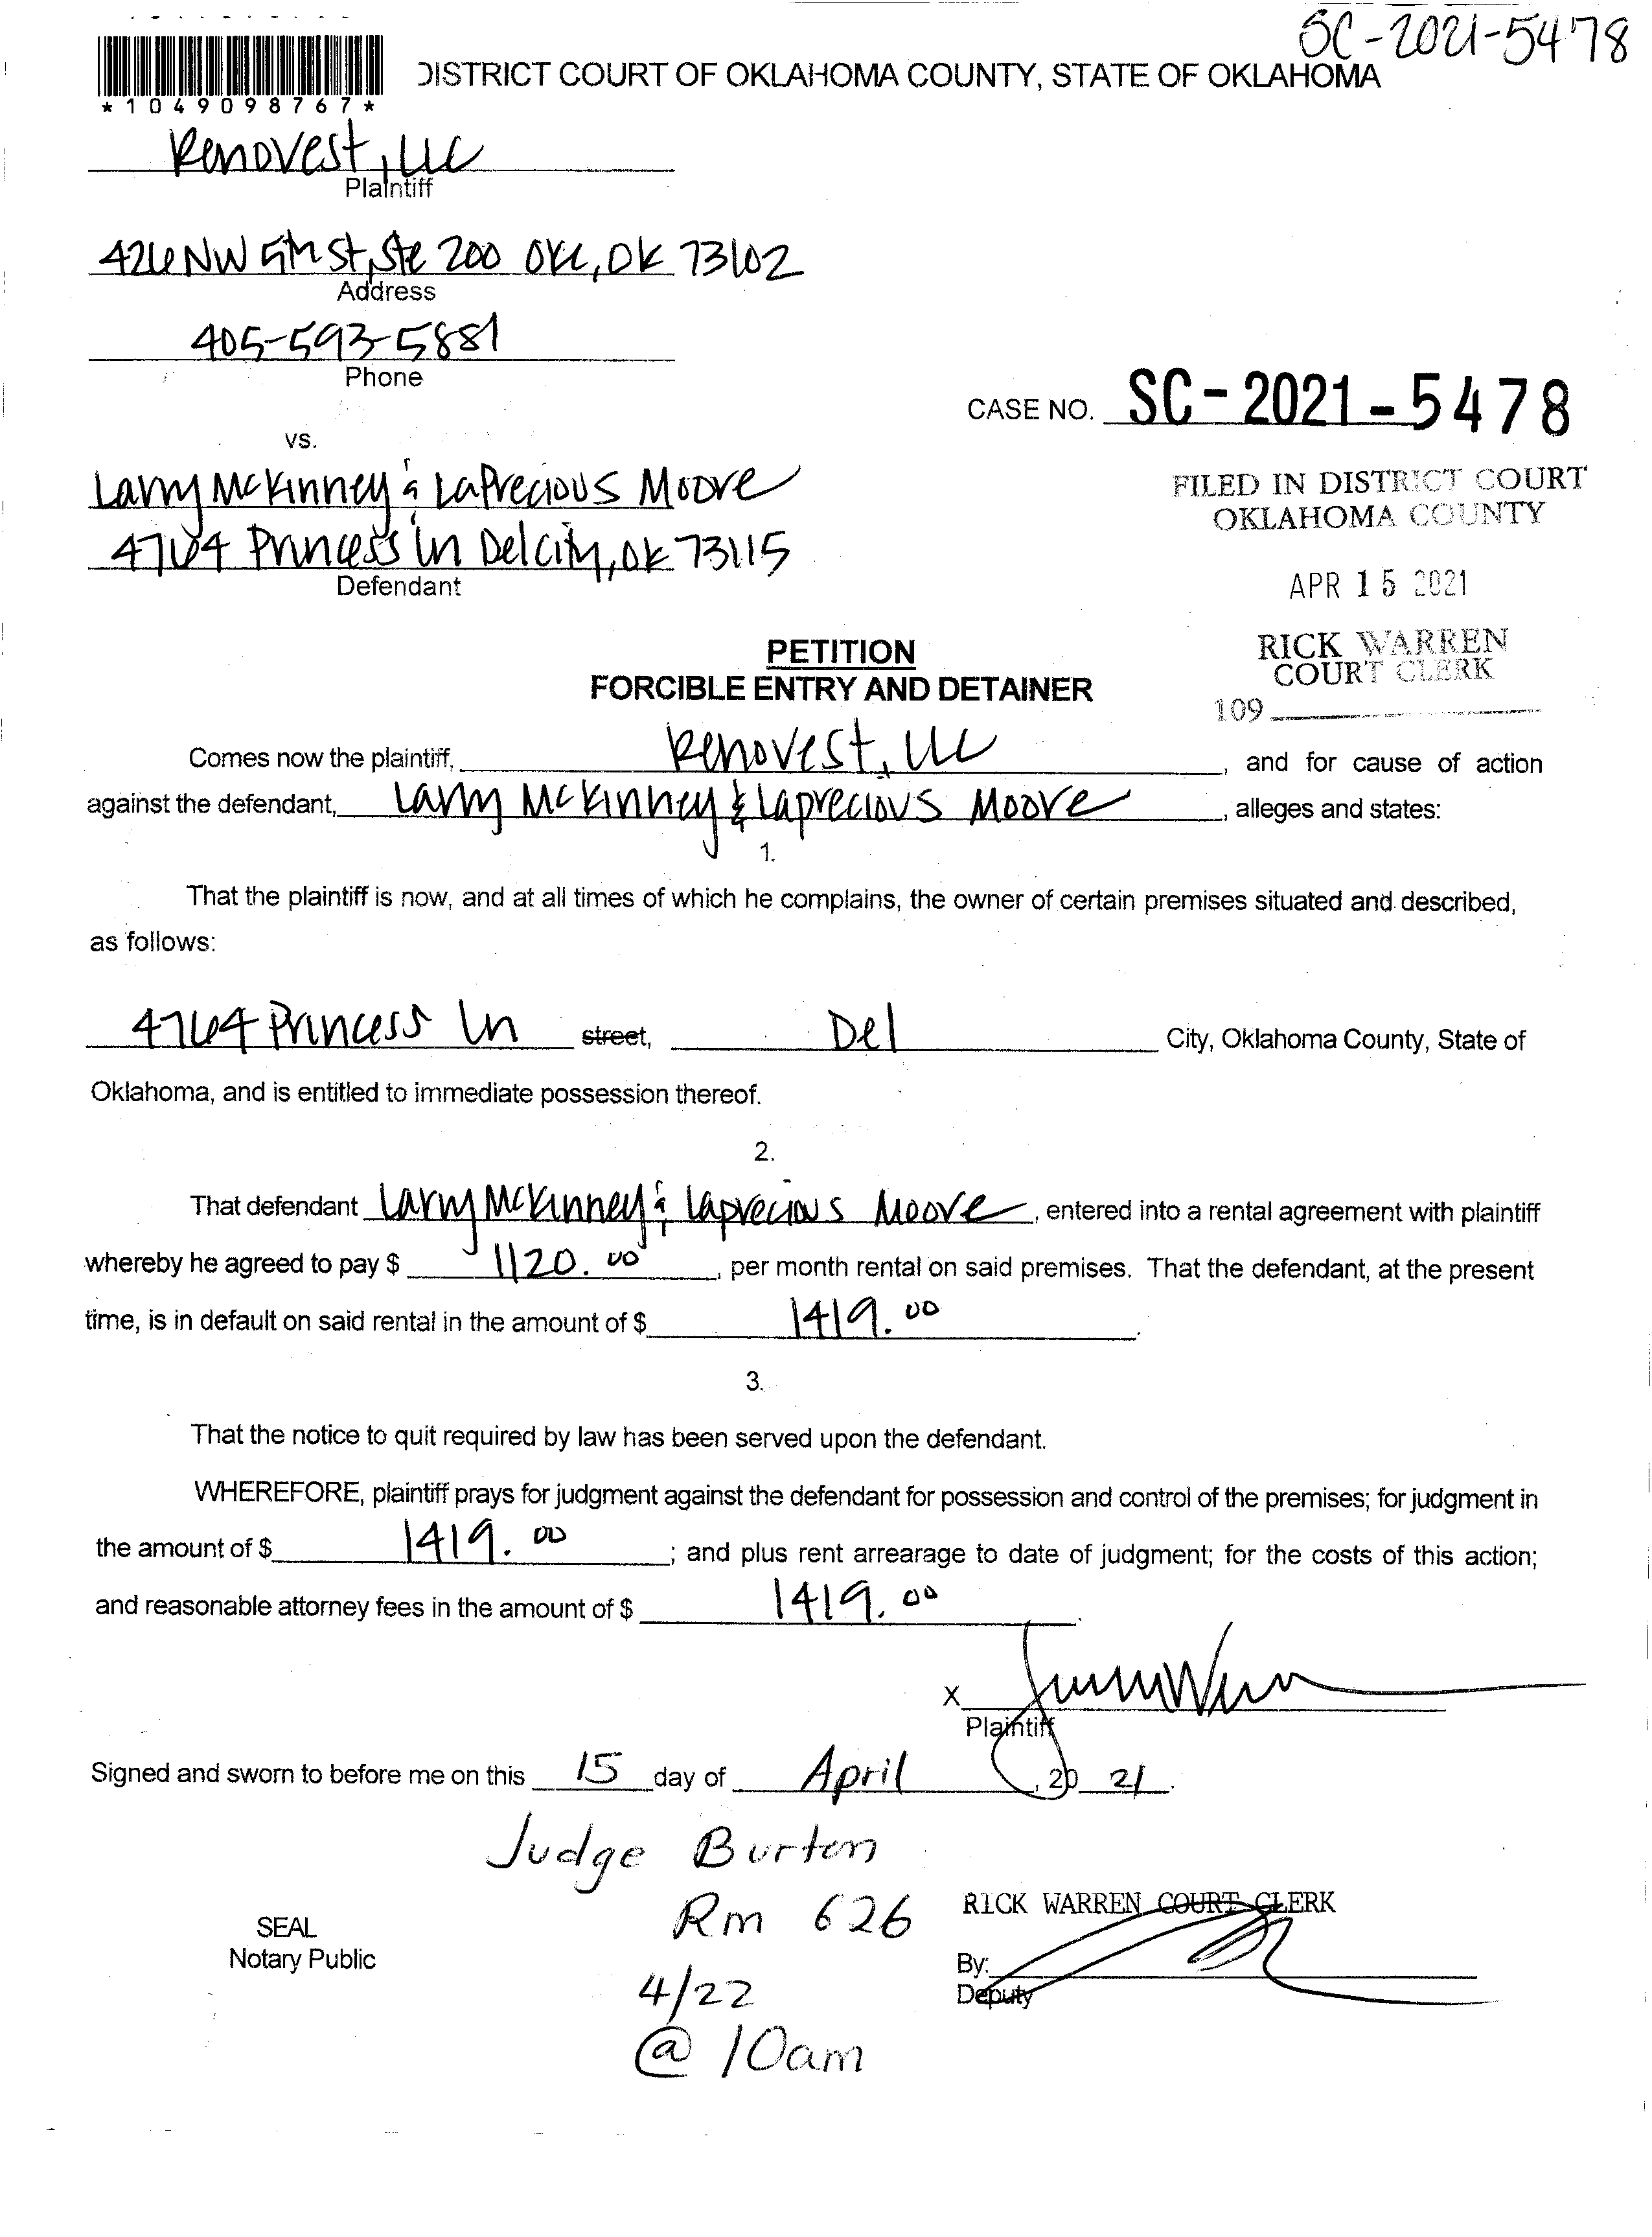 SC-2021-5478
*1049098767*
DISTRICT COURT OF OKLAHOMA COUNTY, STATE OF OKLAHOMA
Renovest, LLC
Plaintiff
426 NW 5th St, Ste 200 OKC, OK 73102
Address
405-593-5881
Phone
CASE NO. SC-2021-5478
vs.
Larry McKinney & LaPrecious Moore
FILED IN DISTRICT COURT
OKLAHOMA COUNTY
4764 Princess Ln Del City, OK 73115
Defendant
APR 15 2021
RICK WARREN
COURT CLERK
109
PETITION
FORCIBLE ENTRY AND DETAINER
Comes now the plaintiff, Renovest, LLC, and for cause of action
against the defendant, Larry McKinney & Laprecious Moore, alleges and states:
1.
That the plaintiff is now, and at all times of which he complains, the owner of certain premises situated and described,
as follows:
4764 Princess Ln street, Del City, Oklahoma County, State of
Oklahoma, and is entitled to immediate possession thereof.
2.
That defendant Larry McKinney & Laprecious Moore, entered into a rental agreement with plaintiff
whereby he agreed to pay $ 1120.00, per month rental on said premises. That the defendant, at the present
time, is in default on said rental in the amount of $ 1419.00.
3.
That the notice to quit required by law has been served upon the defendant.
WHEREFORE, plaintiff prays for judgment against the defendant for possession and control of the premises; for judgment in
the amount of $ 1419.00; and plus rent arrearage to date of judgment; for the costs of this action;
and reasonable attorney fees in the amount of $ 1419.00.
X
Plaintiff
Signed and sworn to before me on this 15 day of April, 20 21.
Judge Burton
Rm 626
4/22
@ 10am
SEAL
Notary Public
RICK WARREN COURT CLERK
By:
Deputy